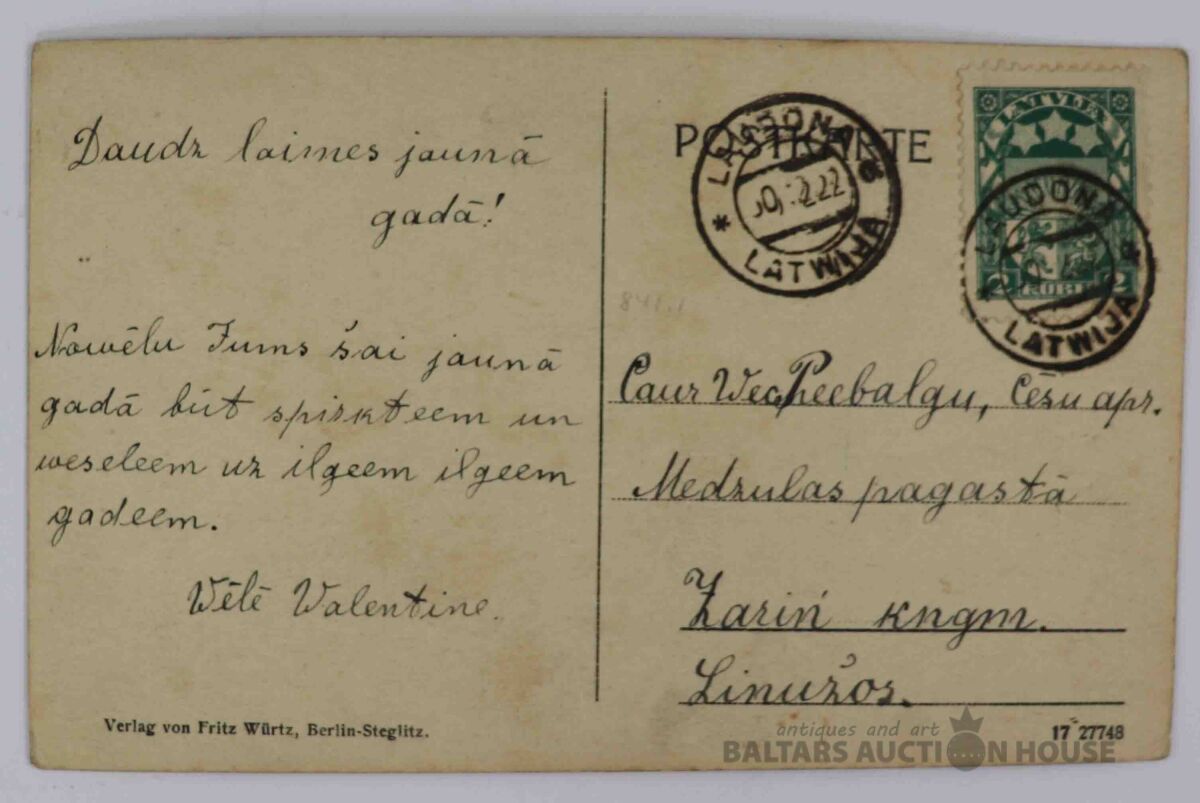 Daudz laimes jaunā
gadā!
Nowēlu Jums šai jaunā
gadā būt spirkteem un
weseleem uz ilgeem ilgeem
gadeem.
Wēlē Walentine.
Verlag von Fritz Würtz, Berlin-Steglitz.
POSTKARTE
LAUDONA
30.12.22
LATWIJA
LATVIJA
2 RUBĻI 2
LAUDONA
LATWIJA
841.1
Caur Wec Peebalgu, Cēsu apr.
Medzulas pagastā
Zariń kngm.
Linužos.
17 27748
antiques and art
BALTARS AUCTION HOUSE